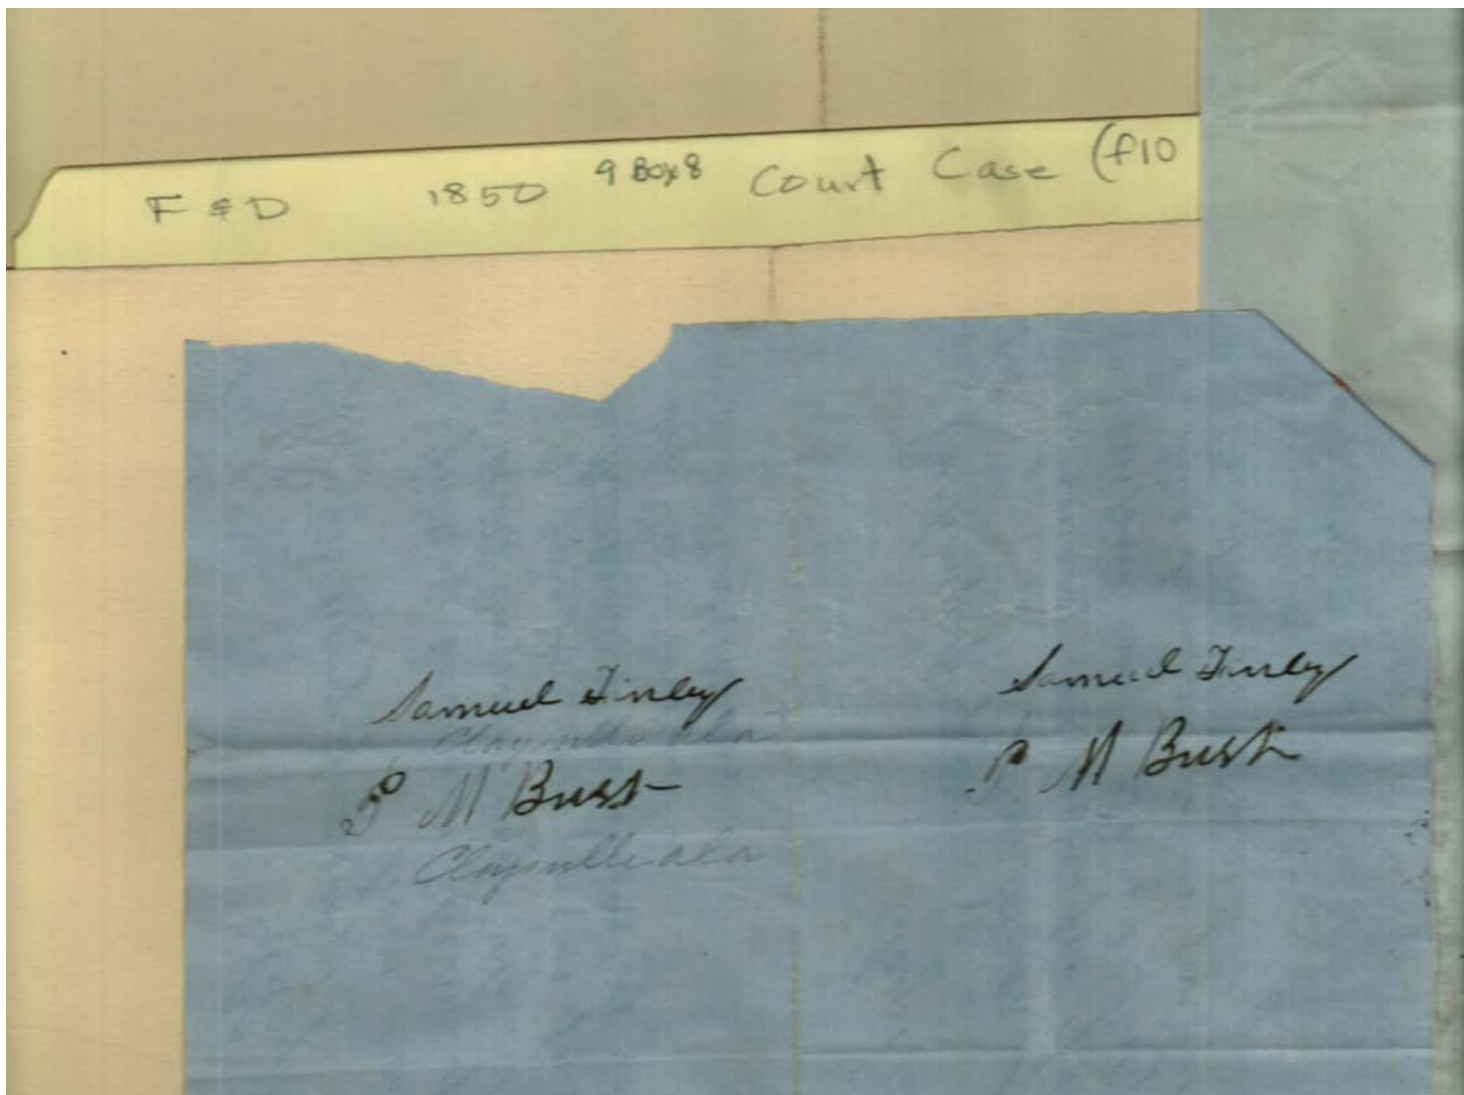 F & D 1850 9 Box 8 Court Case (f10
Samuel Finley
Claysville Ala
P M Bush
Claysville Ala
Samuel Finley
P M Bush